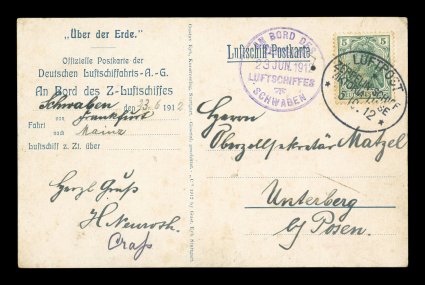 „Über der Erde."
Offizielle Postkarte der
Deutschen Luftschiffahrts-A.-G.
An Bord des Z-Luftschiffes
Schwaben den 23. 6 1912
Fahrt von Frankfurt
nach Mainz
Luftschiff z. Zt. über
Herzl. Gruß
Luftschiff-Postkarte
AN BORD DES
23 JUN. 1912
LUFTSCHIFFES
SCHWABEN
5 5
LUFTPOST
12
Herrn
Oberzollsekretär Matzel
Unterberg
b/ Posen.